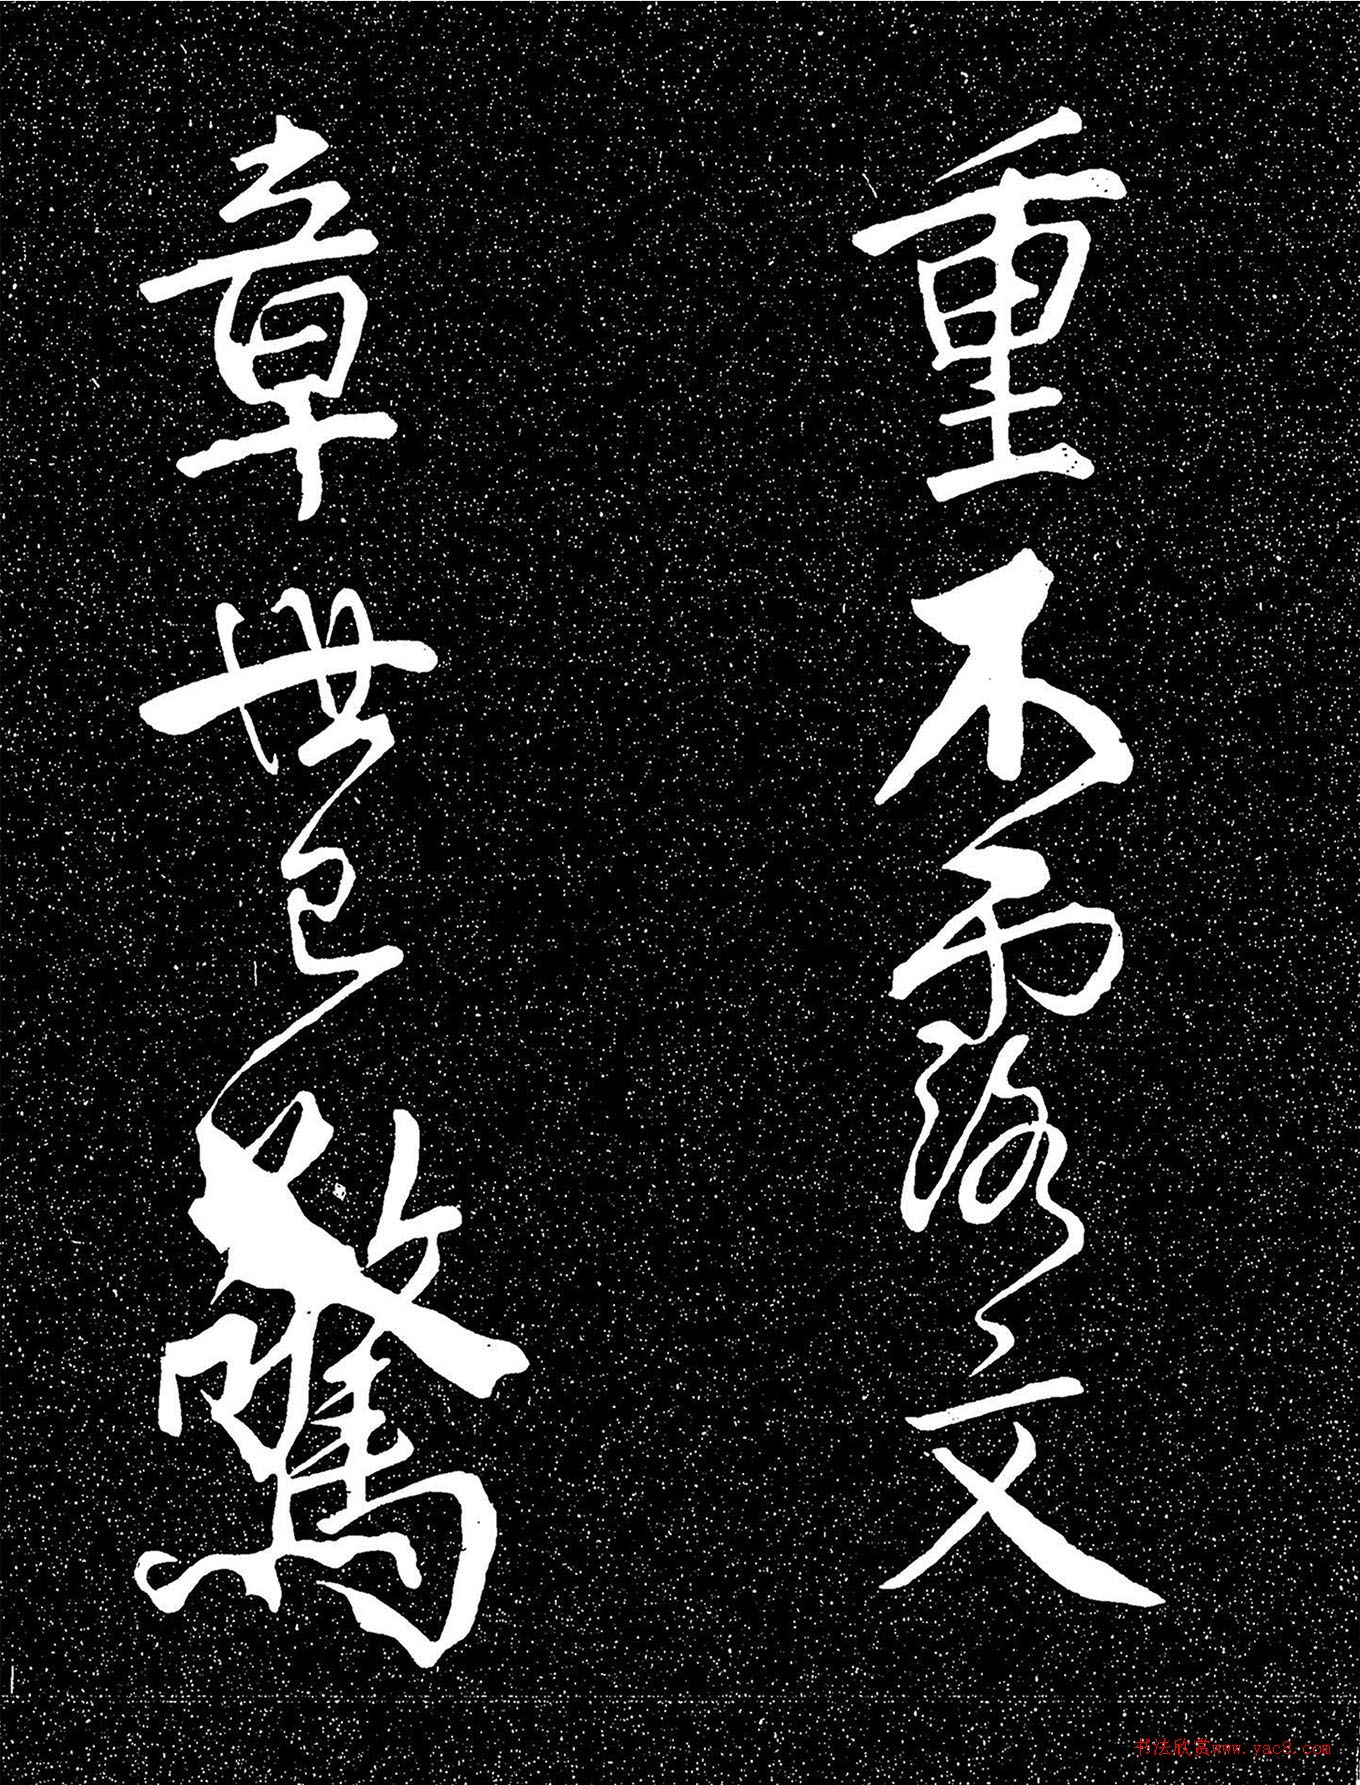 重不露文
章世已驚
书法欣赏www.yac8.com